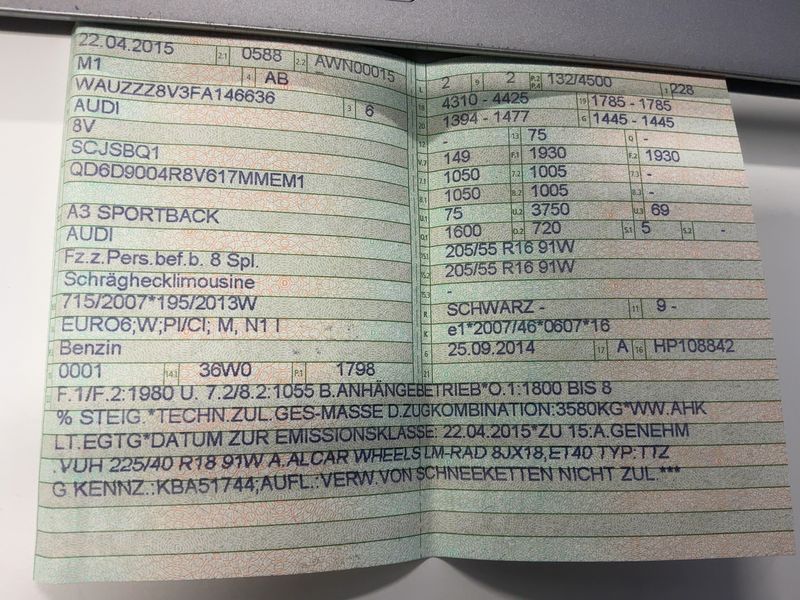 22.04.2015 2.1 0588 2.2 AWN00015
M1 4 AB
WAUZZZ8V3FA146636 3 6
AUDI
8V
SCJSBQ1
QD6D9004R8V617MMEM1
A3 SPORTBACK
AUDI
Fz.z.Pers.bef.b. 8 Spl.
Schräghecklimousine
715/2007*195/2013W
EURO6;W;PI/CI; M, N1 I
Benzin
0001 14.1 36W0 P.1 1798
L 2 9 2 P.2 P.4 132/4500 T 228
18 4310 - 4425 19 1785 - 1785
20 1394 - 1477 G 1445 - 1445
- 13 75 Q -
149 F.1 1930 F.2 1930
7.1 1050 7.2 1005 7.3 -
8.1 1050 8.2 1005 8.3 -
U.1 75 U.2 3750 U.3 69
O.1 1600 O.2 720 S.1 5 S.2 -
15.1 205/55 R16 91W
15.2 205/55 R16 91W
15.3 -
R SCHWARZ - 11 9 -
K e1*2007/46*0607*16
6 25.09.2014 17 A 16 HP108842
F.1/F.2:1980 U. 7.2/8.2:1055 B.ANHÄNGEBETRIEB*O.1:1800 BIS 8
% STEIG.*TECHN.ZUL.GES-MASSE D.ZUGKOMBINATION:3580KG*WW.AHK
LT.EGTG*DATUM ZUR EMISSIONSKLASSE: 22.04.2015*ZU 15:A.GENEHM
.VUH 225/40 R18 91W A.ALCAR WHEELS LM-RAD 8JX18,ET40 TYP:TTZ
G KENNZ.:KBA51744;AUFL.:VERW.VON SCHNEEKETTEN NICHT ZUL.***